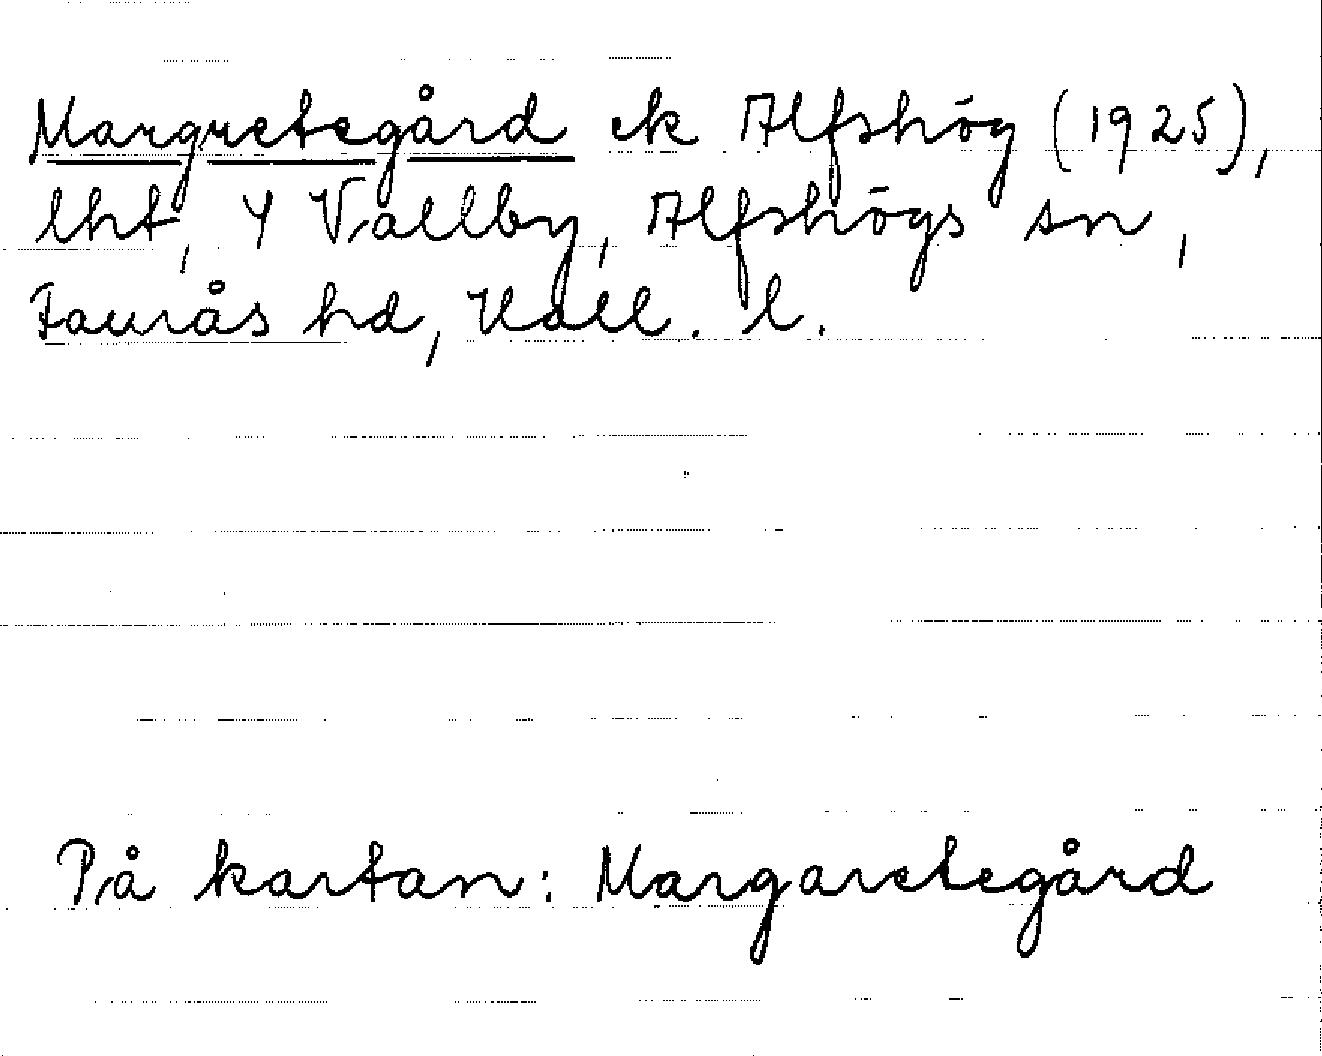 Margretegård ek Alfshög (1925),
lht, Y Vallby, Alfshögs sn,
Faurås hd, Hall. l.
På kartan: Margaretegård